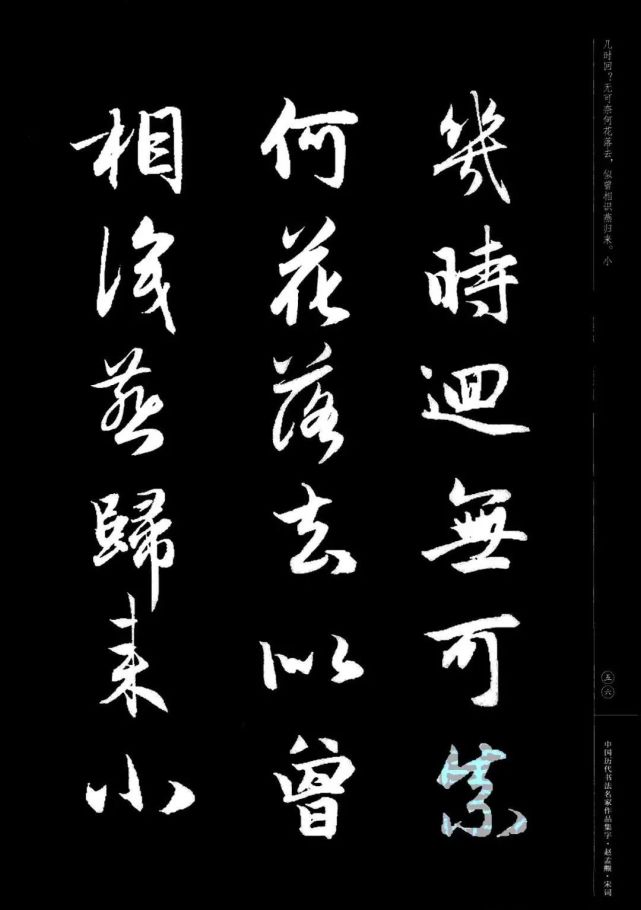 几时回？无可奈何花落去，似曾相识燕归来。小
幾時迴無可
何花落去似曾
相識燕歸来小
五六
中国历代书法名家作品集字·赵孟頫·宋词